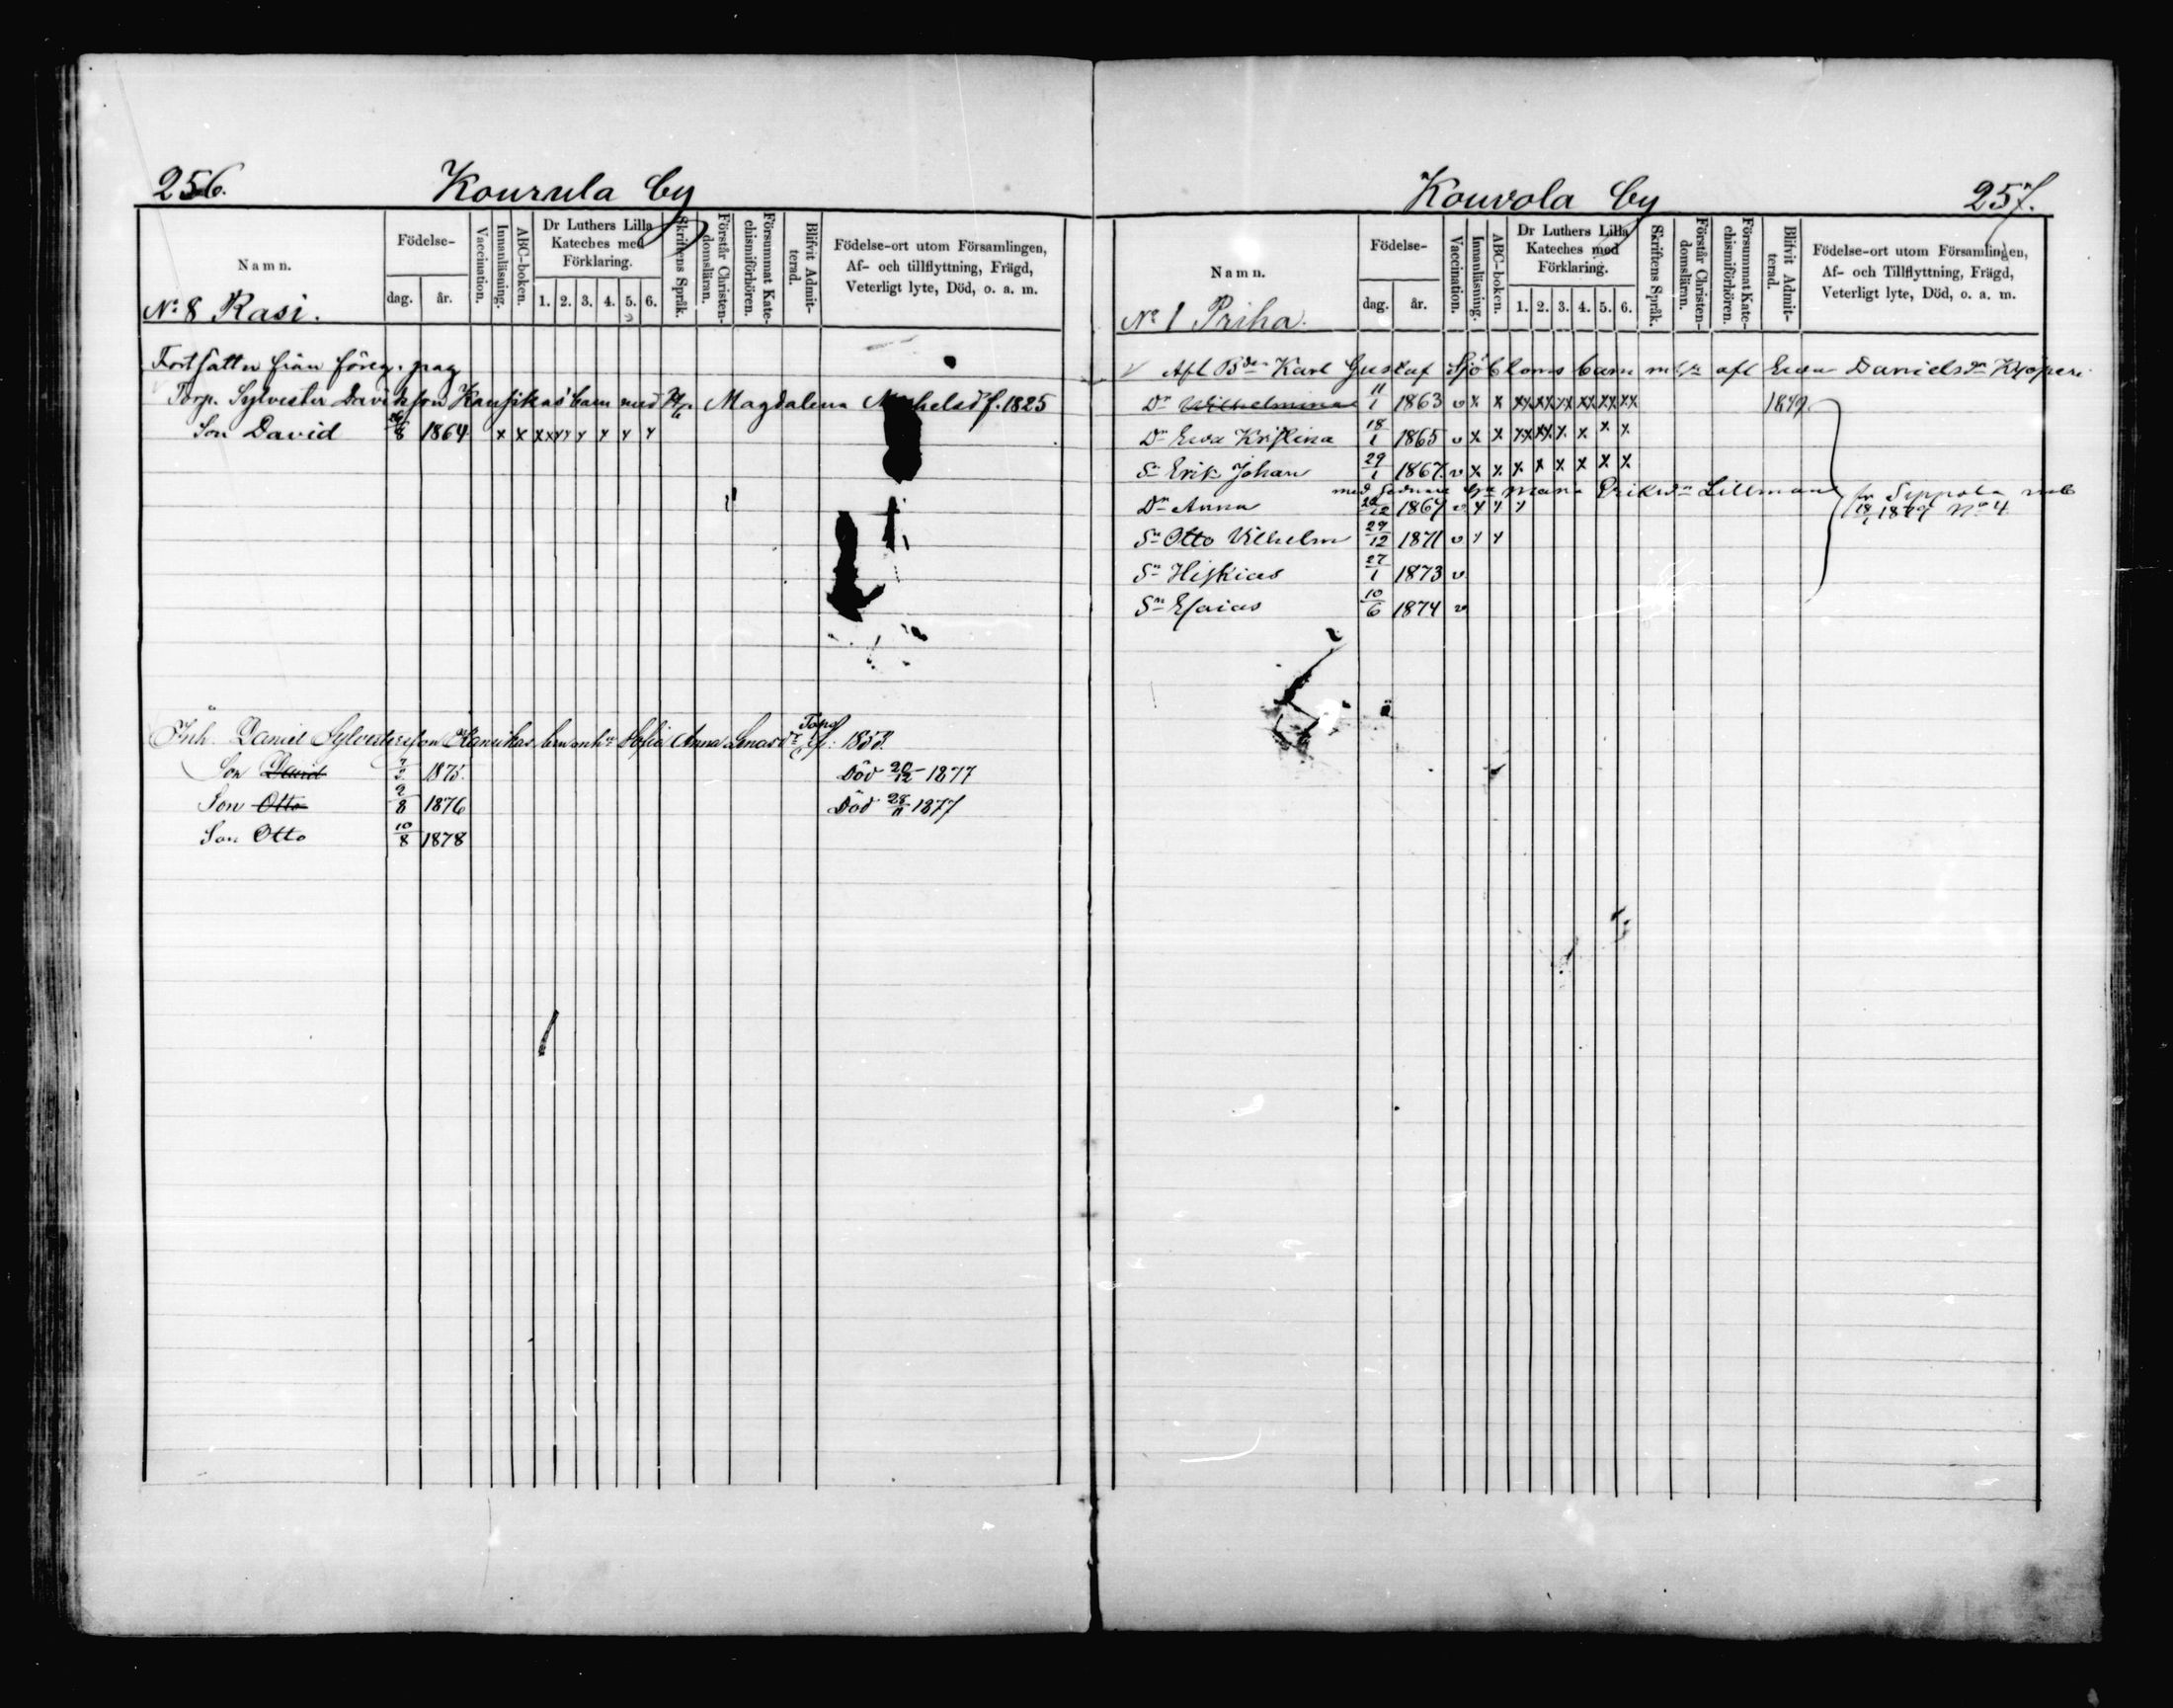 256.
Kourula by
Namn.
Födelse-
dag. år.
Vaccination.
Innanläsning.
ABC-boken.
Dr Luthers Lilla Kateches med Förklaring.
1. 2. 3. 4. 5. 6.
Skriftens Språk.
Förstår Christendomsläran.
Försummat Katechismiförhören.
Blifvit Admitterad.
Födelse-ort utom Församlingen,
Af- och tillflyttning, Frägd,
Veterligt lyte, Död, o. a. m.
No 8 Rasi.
Fortsattn från föreg. pag
Torp. Sylvester Davidsson Kansikas barn med Magdalena f. 1825
Son David 8 1864 x x xx x x x x x
Inh. Daniel Sylvestersson Kansikas barn m hu Sofia Anna f: 1853.
Son David 1875. Död 20/12 1877
Son Otto 2/8 1876 Död 28/11 1877
Son Otto 10/8 1878
Kouvola by
257.
Namn.
Födelse-
dag. år.
Vaccination.
Innanläsning.
ABC-boken.
Dr Luthers Lilla Kateches med Förklaring.
1. 2. 3. 4. 5. 6.
Skriftens Språk.
Förstår Christendomsläran.
Försummat Katechismiförhören.
Blifvit Admitterad.
Födelse-ort utom Församlingen,
Af- och Tillflyttning, Frägd,
Veterligt lyte, Död, o. a. m.
No 1 Priha.
Afl Bden Karl Gustaf Sjöbloms barn m hu afl Eva Danielsdr
Dr Wilhelmina 11/1 1863 v x x xx xx xx xx xx xx 1879
Dr Eva Kristina 18/1 1865 v x x xx xx x x x x
Sn Erik Johan 29/1 1867 v x x x x x x x x
med sednare hu Maria Eriksdr Lillman fr Sippola mb
Dr Anna 1869 v x x x 18/1 1879 No 4
Sn Otto Vilhelm 29/12 1871 v x x
Sn Hiskias 27/1 1873 v
Sn Esaias 10/6 1874 v